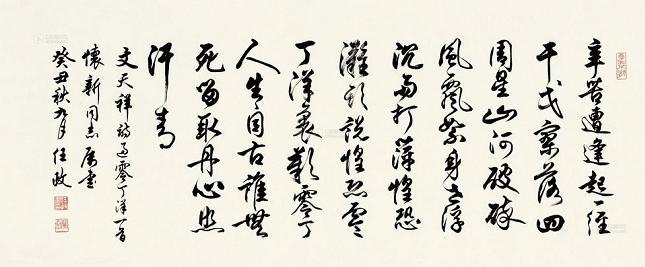 辛苦遭逢起一經
干戈寥落四
周星山河破碎
風飄絮身世浮
沉雨打萍惶恐
灘頭説惶恐零
丁洋裏歎零丁
人生自古誰無
死留取丹心照
汗青
文天祥詩過零丁洋一首
懷新同志属書
癸丑秋九月任政